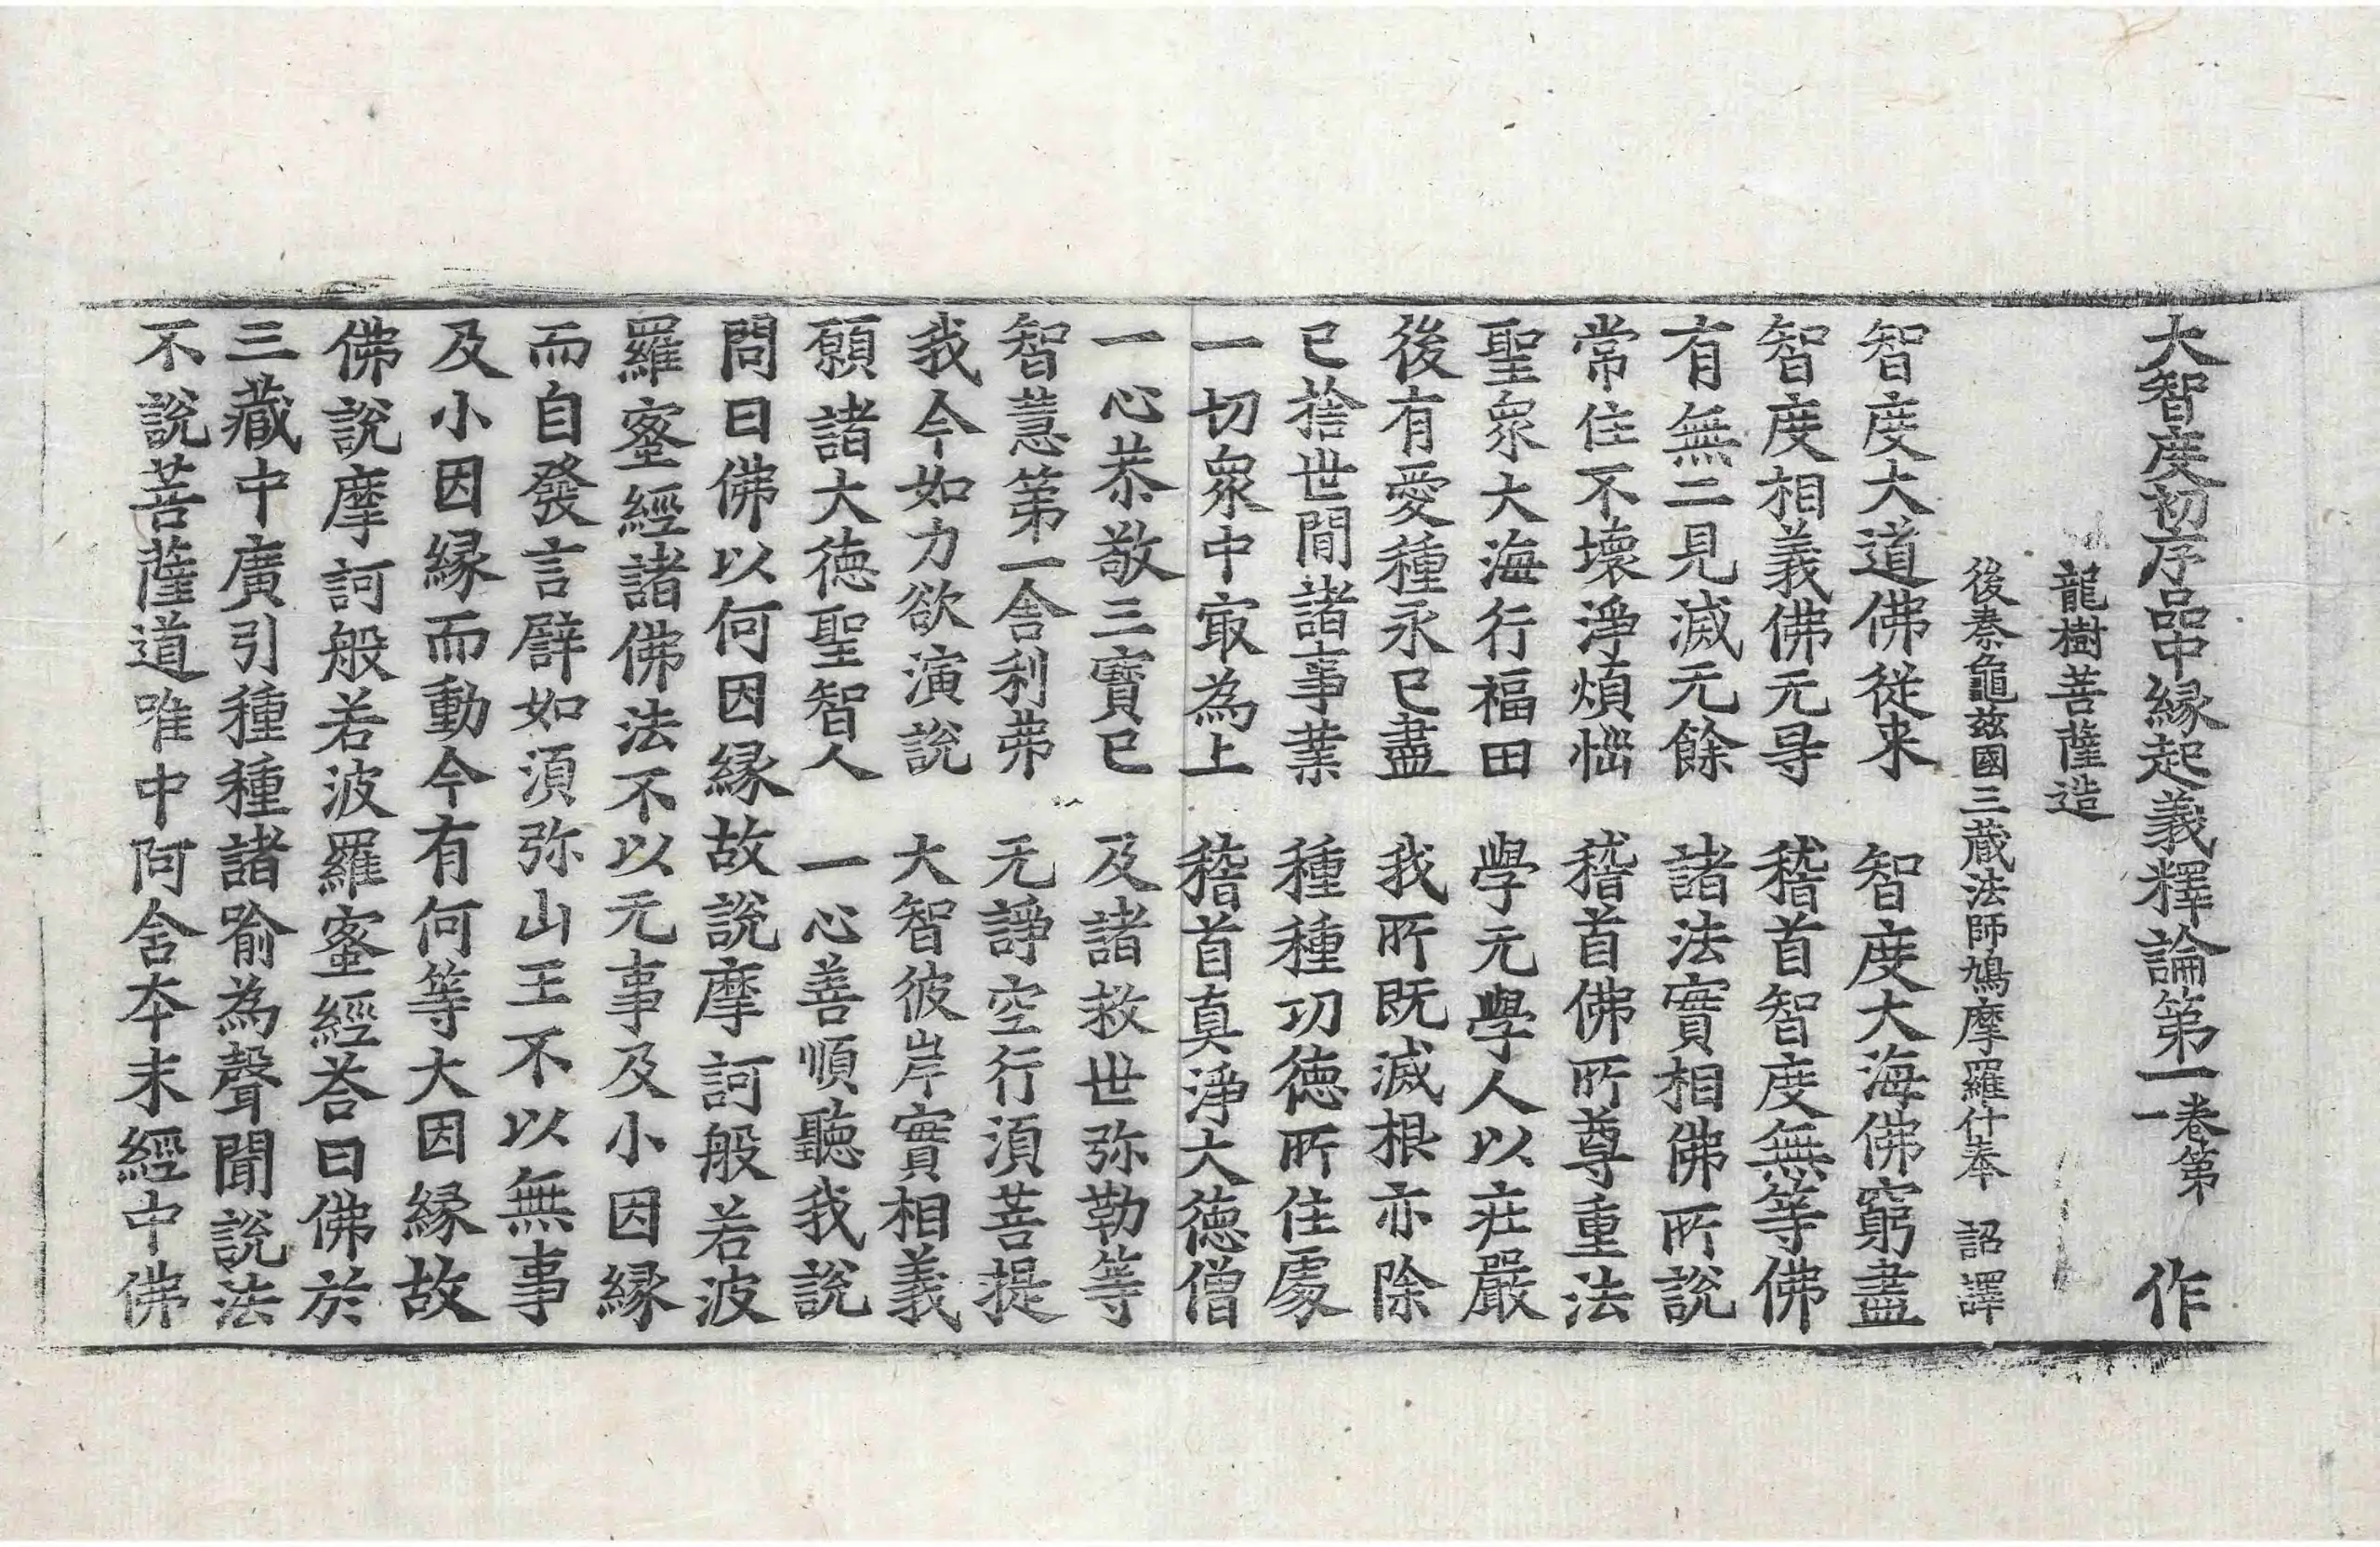 大智度初序品中縁起義釋論第一卷第一 作
龍樹菩薩造
後秦龜玆國三蔵法師鳩摩羅什奉 詔譯
智度大道佛從来 智度大海佛窮盡
智度相義佛无㝵 稽首智度無等佛
有無二見滅无餘 諸法實相佛所說
常住不壞淨煩惱 稽首佛所尊重法
聖衆大海行福田 學无學人以莊嚴
後有愛種永已盡 我所既滅根亦除
已捨世間諸事業 種種功徳所住處
一切衆中㝡為上 稽首真淨大徳僧
一心恭敬三寶已 及諸救世弥勒等
智慧第一舍利弗 无諍空行須菩提
我今如力欲演說 大智彼岸實相義
願諸大徳聖智人 一心善順聽我說
問曰佛以何因縁故說摩訶般若波
羅蜜經諸佛法不以无事及小因縁
而自發言譬如須弥山王不以無事
及小因縁而動今有何等大因縁故
佛說摩訶般若波羅蜜經荅曰佛於
三藏中廣引種種諸喻為聲聞說法
不說菩薩道唯中阿含本末經中佛